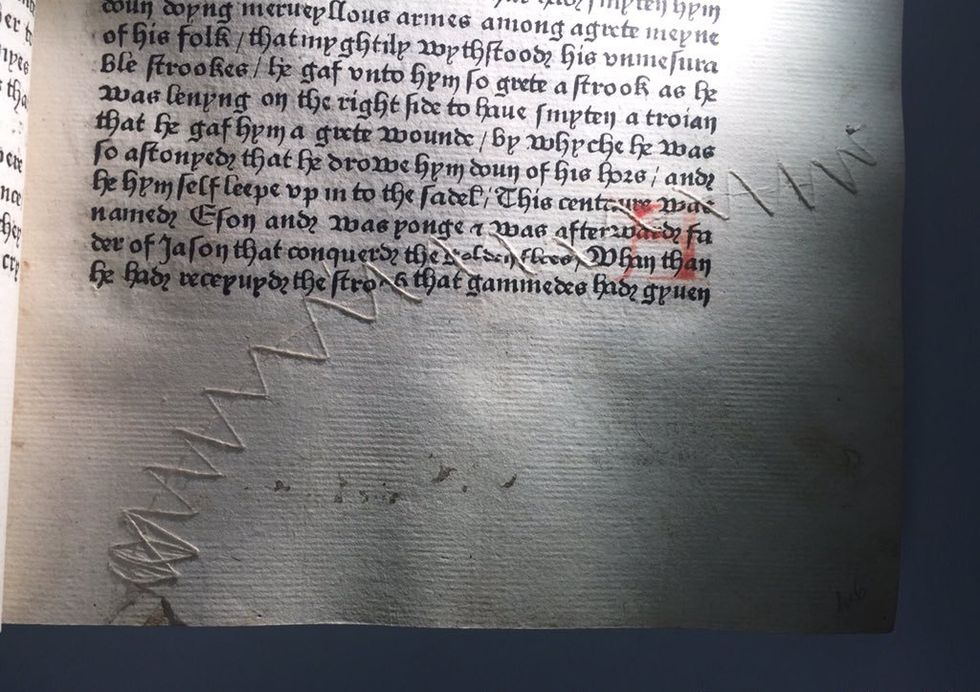 doun doyng merueyllous armes among a grete meyne
of his folk / that myghtily wythstood his vnmesura
ble strookes / he gaf vnto hym so grete a strook as he
was lenyng on the right side to haue smyten a troian
that he gaf hym a grete wounde / by whyche he was
so astonyed that he drowe hym doun of his hors / and
he hym self leepe vp in to the sadel / This centaure was
named Eson and was yonge ⁊ was afterward fa
der of Jason that conquerd the golden flees / Whan than
he had receyuyd the strook that gammedes had gyuen